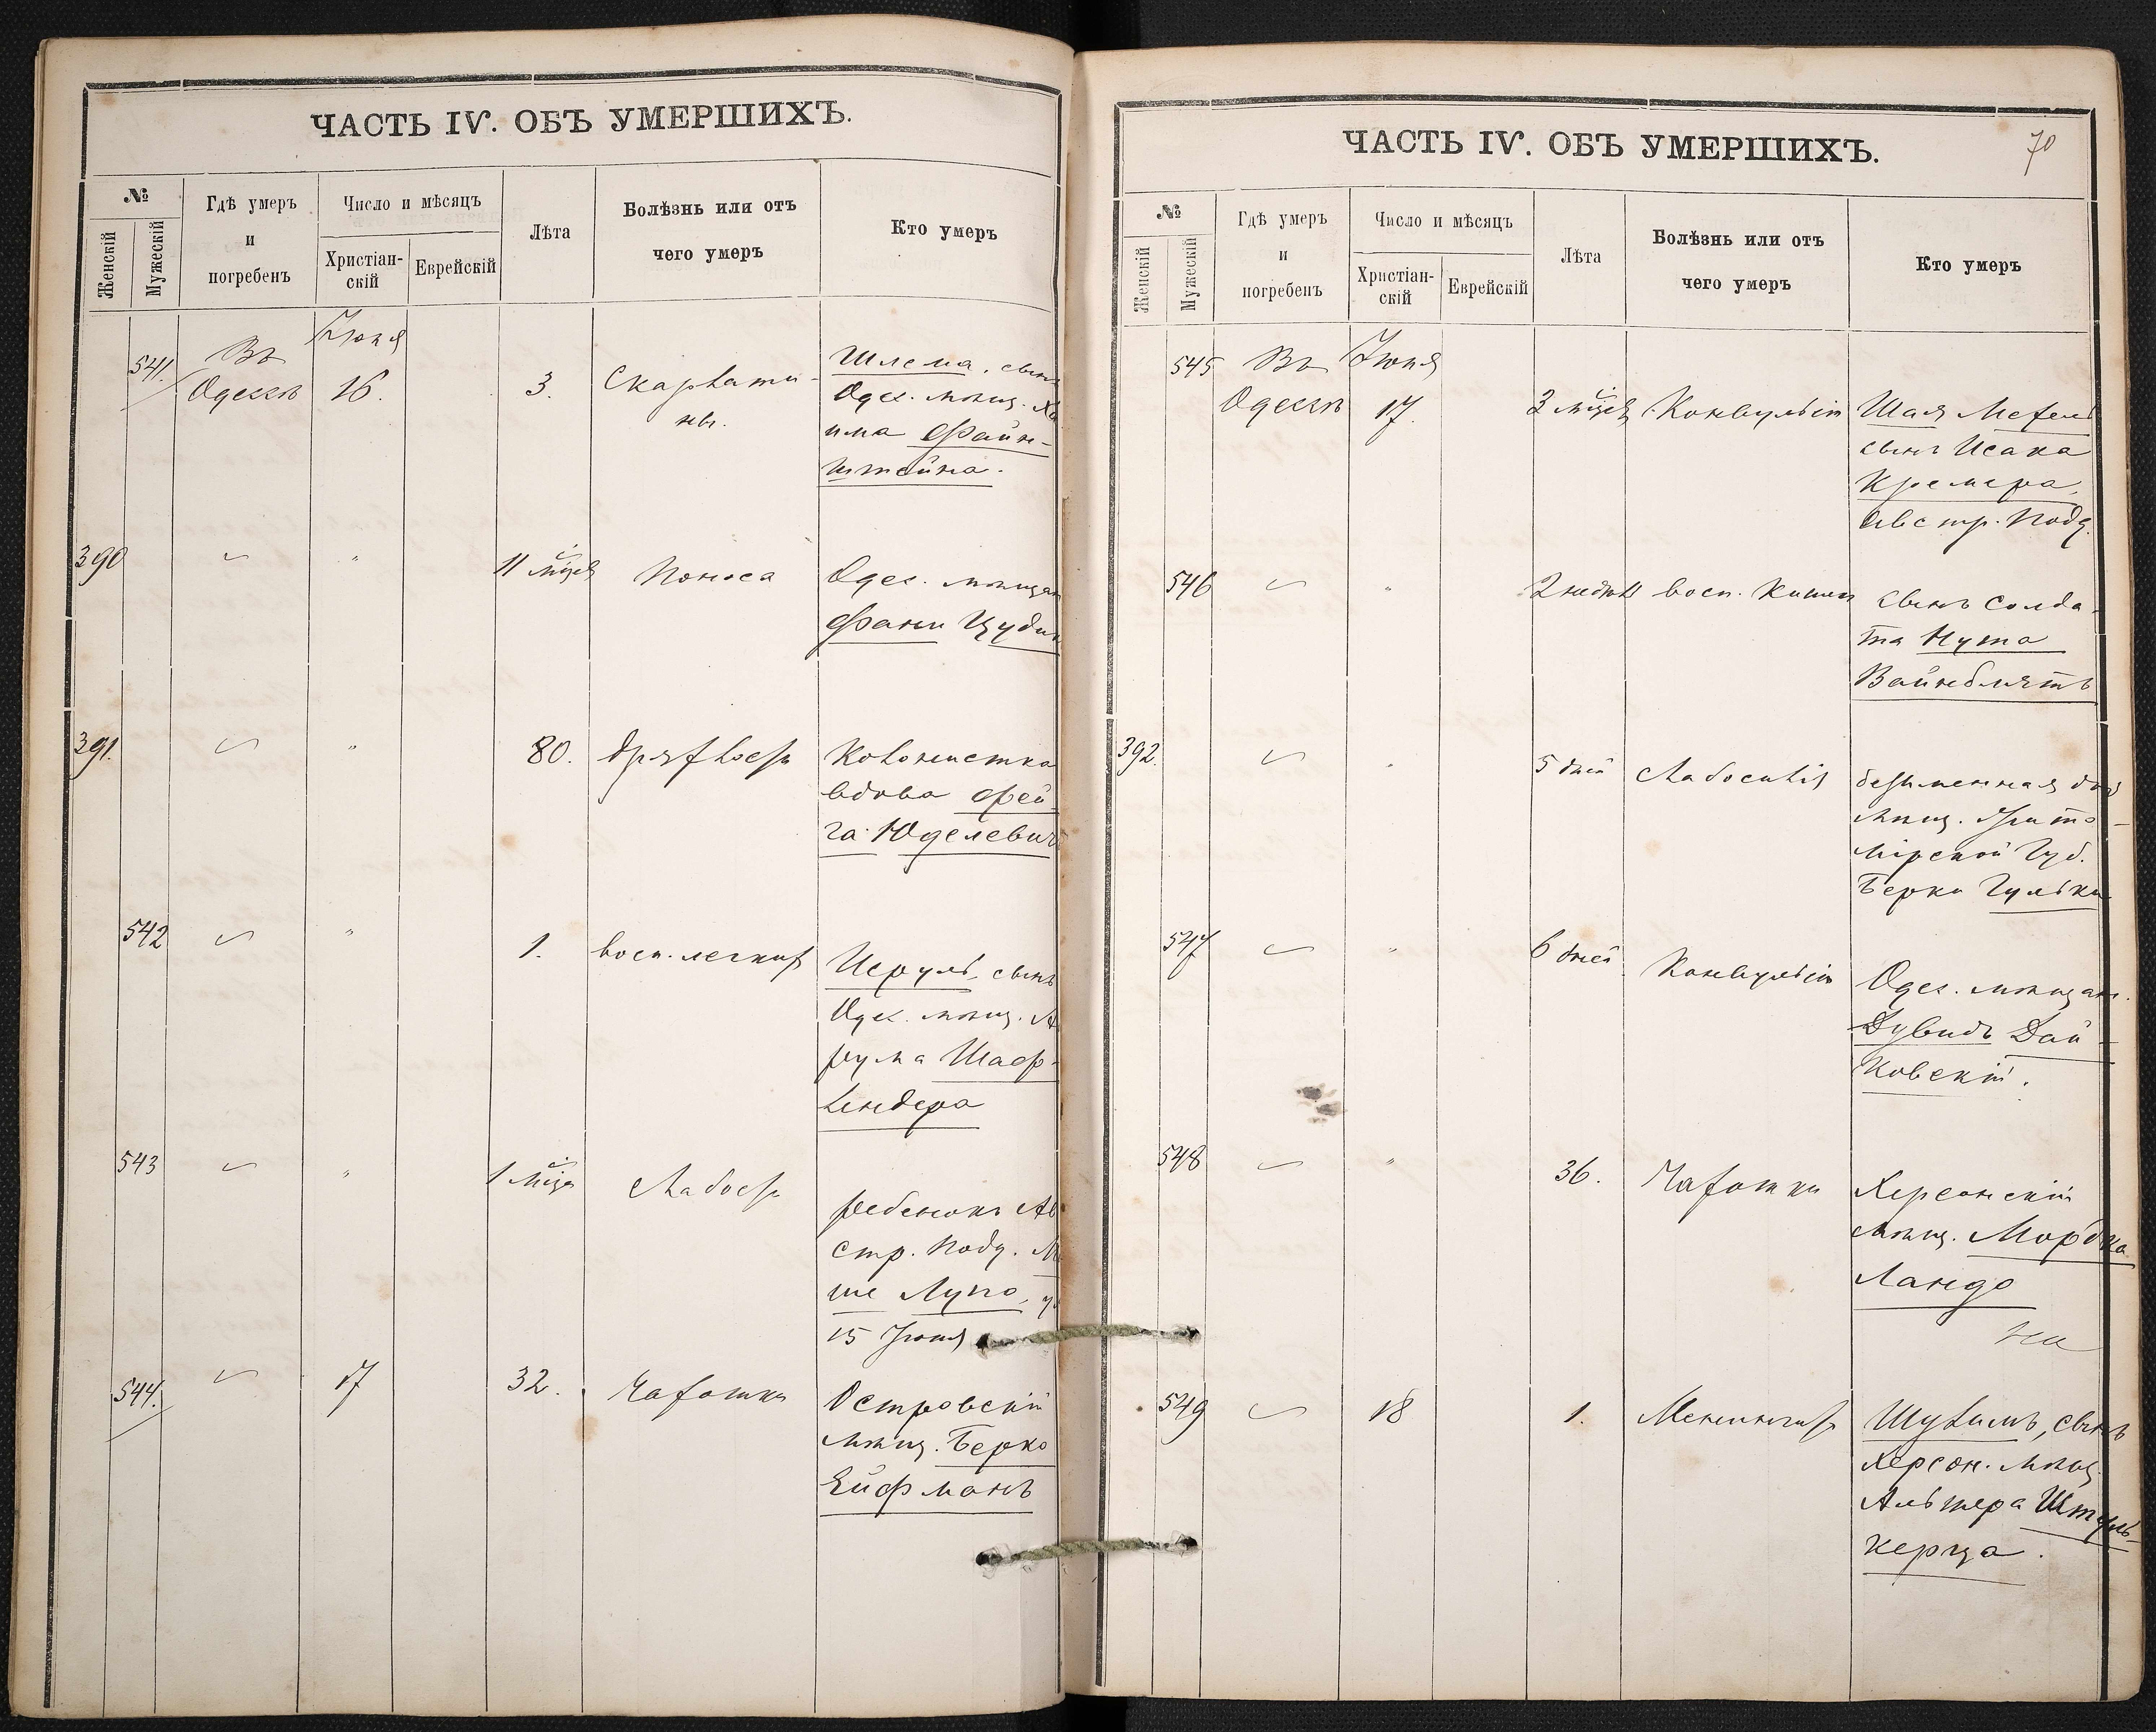 ЧАСТЬ IV. ОБЪ УМЕРШИХЪ.
№
Женскій
Мужескій
Гдѣ умеръ
и
погребенъ
Число и мѣсяцъ
Христіан-
скій
Еврейскій
Лѣта
Болѣзнь или отъ
чего умеръ
Кто умеръ
541.
Въ
Одессѣ
Іюня
16.
3.
Скарлати-
ны.
Шлема, сынъ
Одес. мѣщ.
има Файн-
штейна.
390
"
11 мцев
Поноса
Одес. мѣщан
Фани
391.
"
80.
дряхлость
Колонистка
вдова Фей-
га Юделевич
542
"
1.
восп. легких
Исруль, сынъ
Одес. мѣщ. А
рума Шаф-
лендера
543
"
1 мца
Слабость
ребенокъ Ав
стр. подд. М
ше Лупо,
15 Іюня
544.
17
32.
Чахотки
Островскій
мѣщ. Берко
Ейфманъ
ЧАСТЬ IV. ОБЪ УМЕРШИХЪ.
70
№
Женскій
Мужескій
Гдѣ умеръ
и
погребенъ
Число и мѣсяцъ
Христіан-
скій
Еврейскій
Лѣта
Болѣзнь или отъ
чего умеръ
Кто умеръ
545
Въ
Одессѣ
Іюня
17.
Конвульсіи
Шая
сынъ Исака
Кремера,
Австр. подд.
546
"
2 недѣли
восп. кишек
сынъ солда-
та Нута
Вайнблятъ
392.
"
5 дней
Слабосилія
безименная доч
мѣщ. Жито-
мірской Губ.
Берки Гулька
547
"
6 дней
Конвульсіи
Одес. мѣщан.
Дувидъ Дай-
ковскій.
548
"
36.
Чахотки
Херсонскій
мѣщ. Мордка
Ландо
549
18
1.
Менингитъ
Шулимъ, сынъ
Херсон. мѣщ.
Альтера Штуль-
керца.